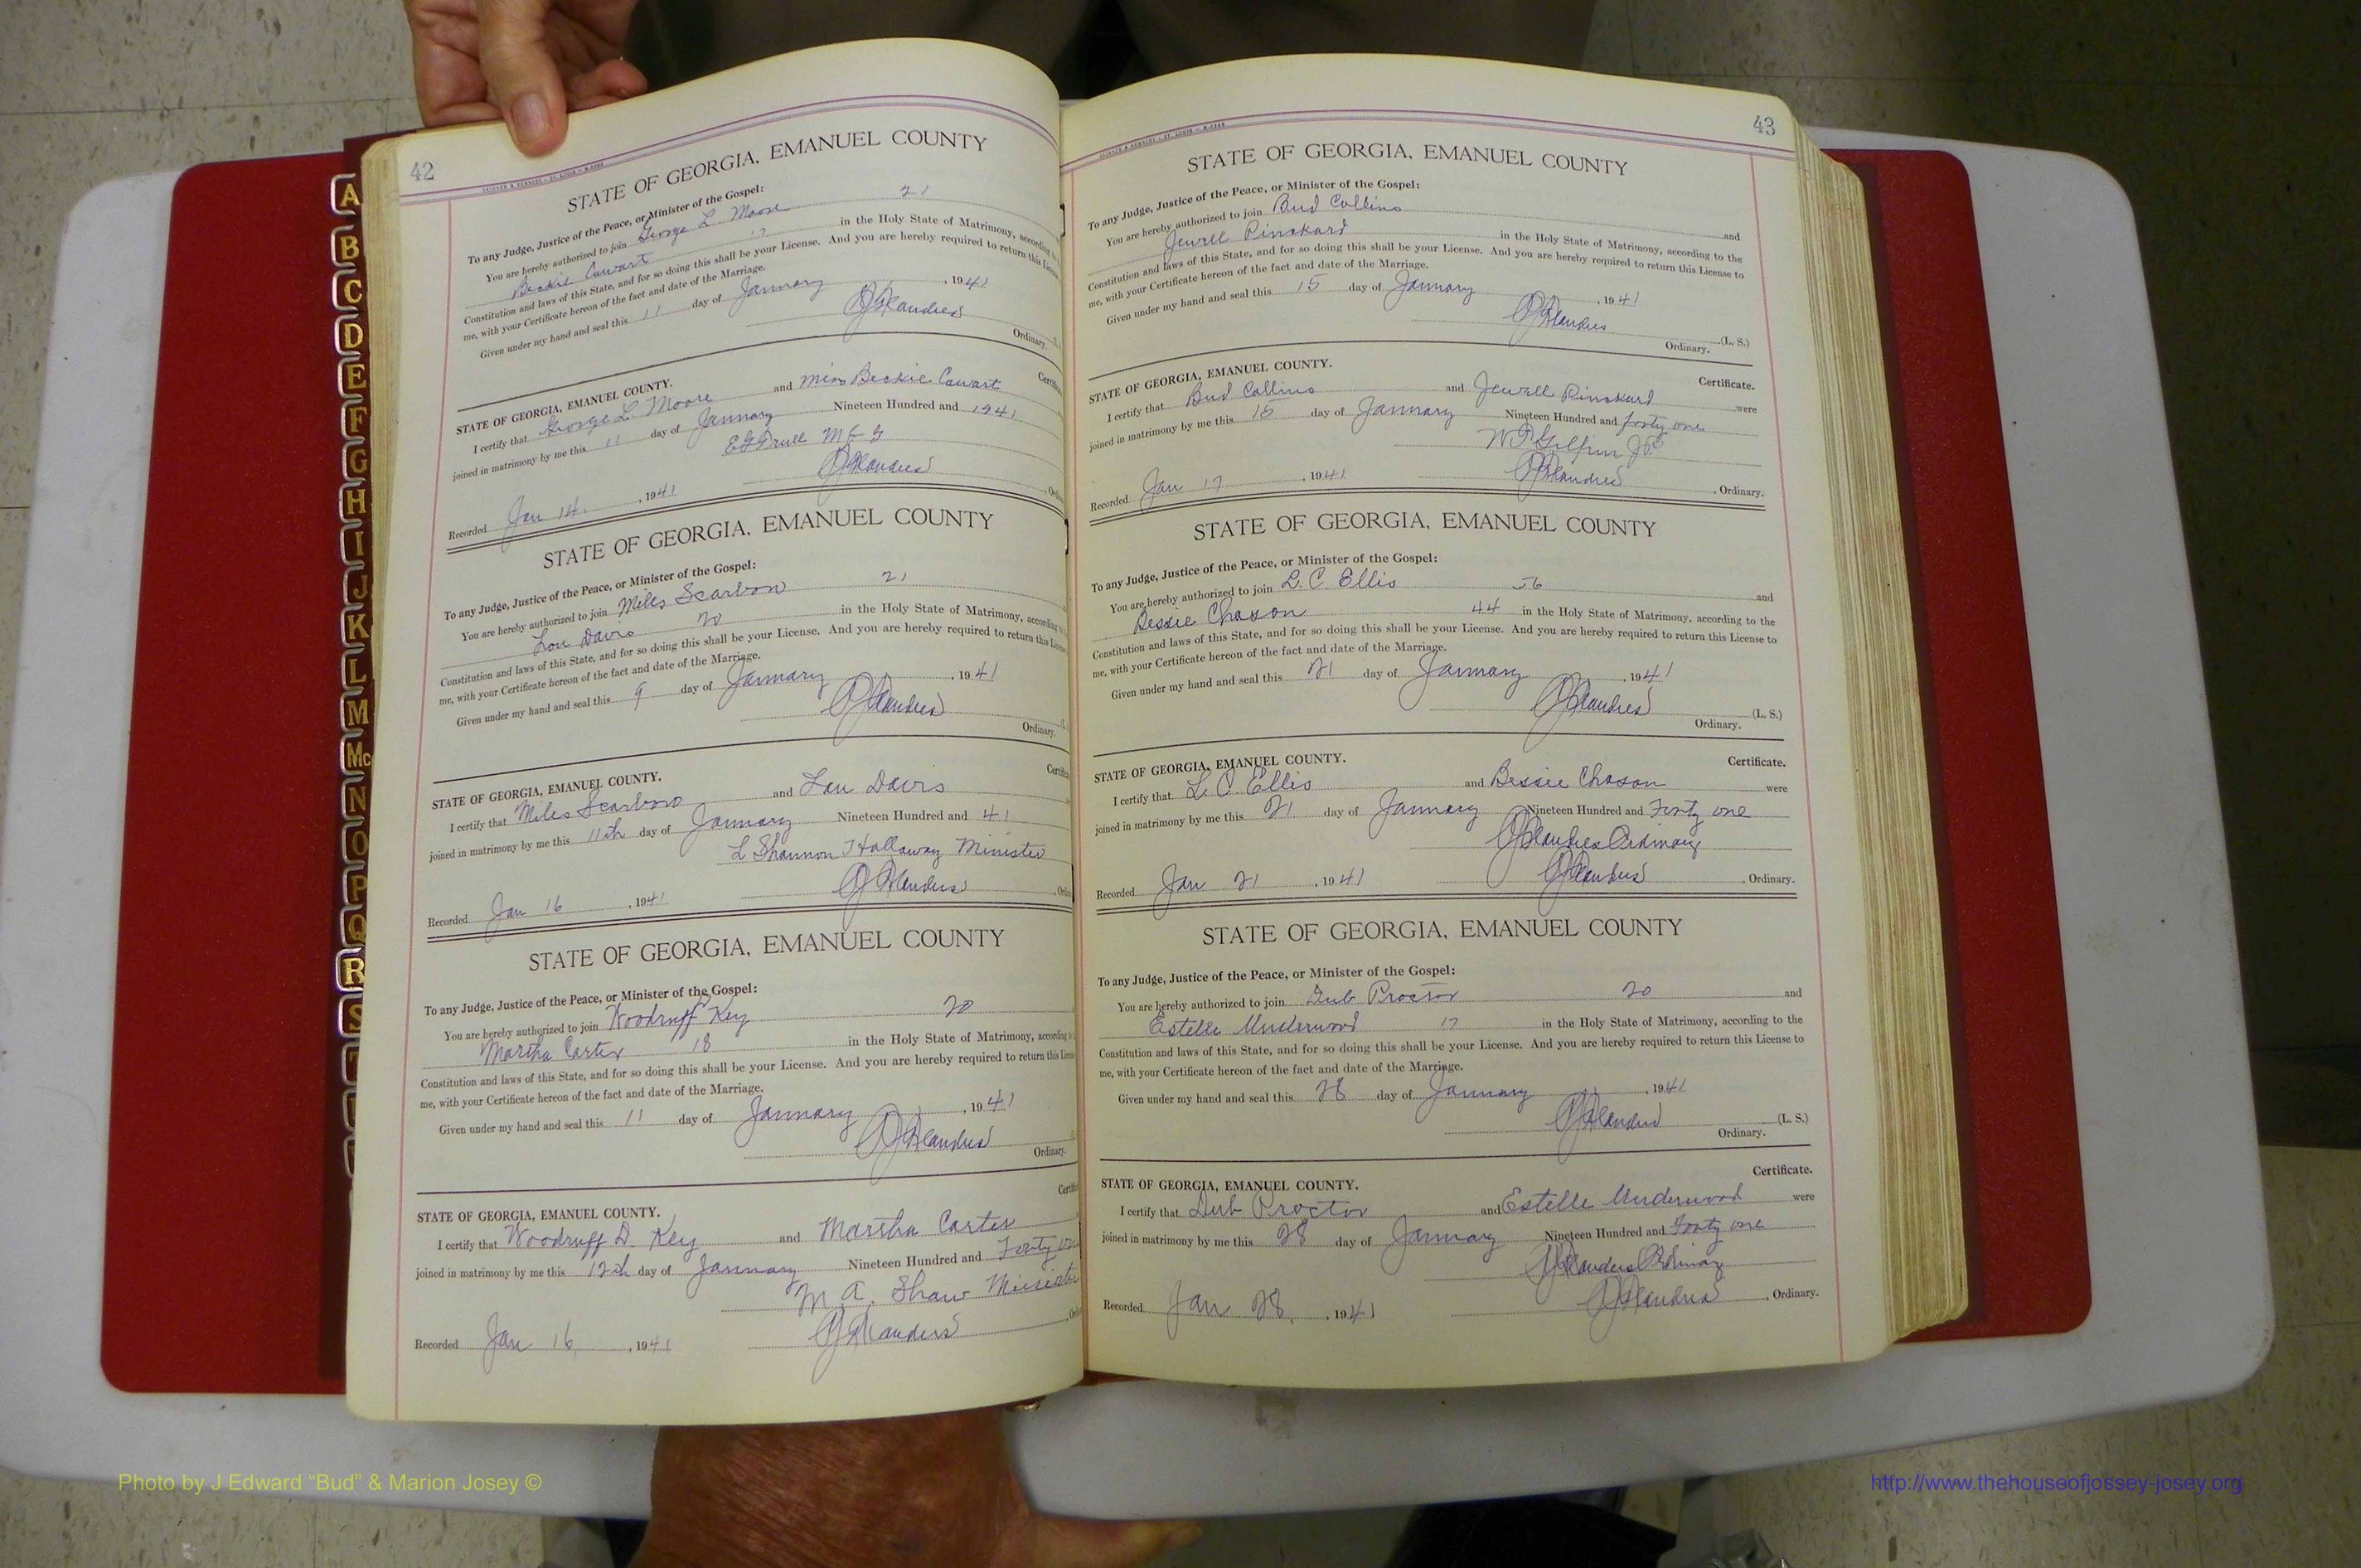 A
B
C
D
E
F
G
H
I
J
K
L
M
Mc
N
O
P
Q
R
S
42
STATE OF GEORGIA, EMANUEL COUNTY
To any Judge, Justice of the Peace, or Minister of the Gospel:
You are hereby authorized to join George L. Moore 21
Beckie Cowart 17 in the Holy State of Matrimony, according
Constitution and laws of this State, and for so doing this shall be your License. And you are hereby required to return this License
me, with your Certificate hereon of the fact and date of the Marriage.
Given under my hand and seal this 11 day of January, 1941
Ordinary.
STATE OF GEORGIA, EMANUEL COUNTY.
I certify that George L. Moore and Miss Beckie Cowart
joined in matrimony by me this 11 day of January Nineteen Hundred and 1941
M G
Recorded Jan 14, 1941
STATE OF GEORGIA, EMANUEL COUNTY
To any Judge, Justice of the Peace, or Minister of the Gospel:
You are hereby authorized to join Miles Scarboro 21
Lou Davis 20 in the Holy State of Matrimony, according
Constitution and laws of this State, and for so doing this shall be your License. And you are hereby required to return this License
me, with your Certificate hereon of the fact and date of the Marriage.
Given under my hand and seal this 9 day of January, 1941
Ordinary.
STATE OF GEORGIA, EMANUEL COUNTY.
I certify that Miles Scarboro and Lou Davis
joined in matrimony by me this 11th day of January Nineteen Hundred and 41
L Shannon Holloway Minister
Recorded Jan 16, 1941
STATE OF GEORGIA, EMANUEL COUNTY
To any Judge, Justice of the Peace, or Minister of the Gospel:
You are hereby authorized to join Woodruff Key 20
Martha Carter 18 in the Holy State of Matrimony, according
Constitution and laws of this State, and for so doing this shall be your License. And you are hereby required to return this License
me, with your Certificate hereon of the fact and date of the Marriage.
Given under my hand and seal this 11 day of January, 1941
Ordinary.
STATE OF GEORGIA, EMANUEL COUNTY.
I certify that Woodruff D. Key and Martha Carter
joined in matrimony by me this 12th day of January Nineteen Hundred and Forty
M. A. Shaw Minister
Recorded Jan 16, 1941
43
STATE OF GEORGIA, EMANUEL COUNTY
To any Judge, Justice of the Peace, or Minister of the Gospel:
You are hereby authorized to join Bud Collins and
Jewell Pinckard in the Holy State of Matrimony, according to the
Constitution and laws of this State, and for so doing this shall be your License. And you are hereby required to return this License to
me, with your Certificate hereon of the fact and date of the Marriage.
Given under my hand and seal this 15 day of January, 1941
(L. S.)
Ordinary.
STATE OF GEORGIA, EMANUEL COUNTY. Certificate.
I certify that Bud Collins and Jewell Pinckard were
joined in matrimony by me this 15 day of January Nineteen Hundred and forty one
Recorded Jan 17, 1941 Ordinary.
STATE OF GEORGIA, EMANUEL COUNTY
To any Judge, Justice of the Peace, or Minister of the Gospel:
You are hereby authorized to join L. C. Ellis 56 and
Bessie Chason 44 in the Holy State of Matrimony, according to the
Constitution and laws of this State, and for so doing this shall be your License. And you are hereby required to return this License to
me, with your Certificate hereon of the fact and date of the Marriage.
Given under my hand and seal this 21 day of January, 1941
(L. S.)
Ordinary.
STATE OF GEORGIA, EMANUEL COUNTY. Certificate.
I certify that L. C. Ellis and Bessie Chason were
joined in matrimony by me this 21 day of January Nineteen Hundred and Forty one
Ordinary
Recorded Jan 21, 1941 Ordinary.
STATE OF GEORGIA, EMANUEL COUNTY
To any Judge, Justice of the Peace, or Minister of the Gospel:
You are hereby authorized to join Dub Proctor 20 and
Estelle Underwood 17 in the Holy State of Matrimony, according to the
Constitution and laws of this State, and for so doing this shall be your License. And you are hereby required to return this License to
me, with your Certificate hereon of the fact and date of the Marriage.
Given under my hand and seal this 28 day of January, 1941
(L. S.)
Ordinary.
STATE OF GEORGIA, EMANUEL COUNTY. Certificate.
I certify that Dub Proctor and Estelle Underwood were
joined in matrimony by me this 28 day of January Nineteen Hundred and Forty one
Ordinary
Recorded Jan 28, 1941 Ordinary.
Photo by J Edward "Bud" & Marion Josey ©
http://www.thehouseofjossey-josey.org